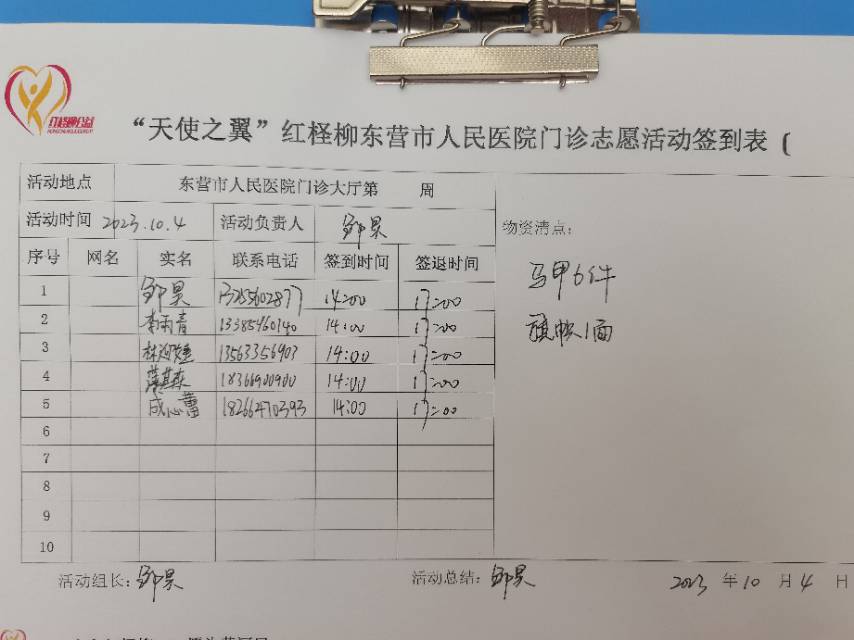 红柽柳公益
“天使之翼”红柽柳东营市人民医院门诊志愿活动签到表（
活动地点 东营市人民医院门诊大厅第 周
活动时间 2023.10.4 活动负责人 邹昊
物资清点：
序号 网名 实名 联系电话 签到时间 签退时间
马甲6件
1 邹昊 14:00 17:00
旗帜1面
2 李雨青 13385460140 14:00 17:00
3 13563356903 14:00 17:00
4 18366900900 14:00 17:00
5 成心蕾 18266470393 14:00 17:00
6
7
8
9
10
活动组长：邹昊 活动总结：邹昊 2023 年 10 月 4 日